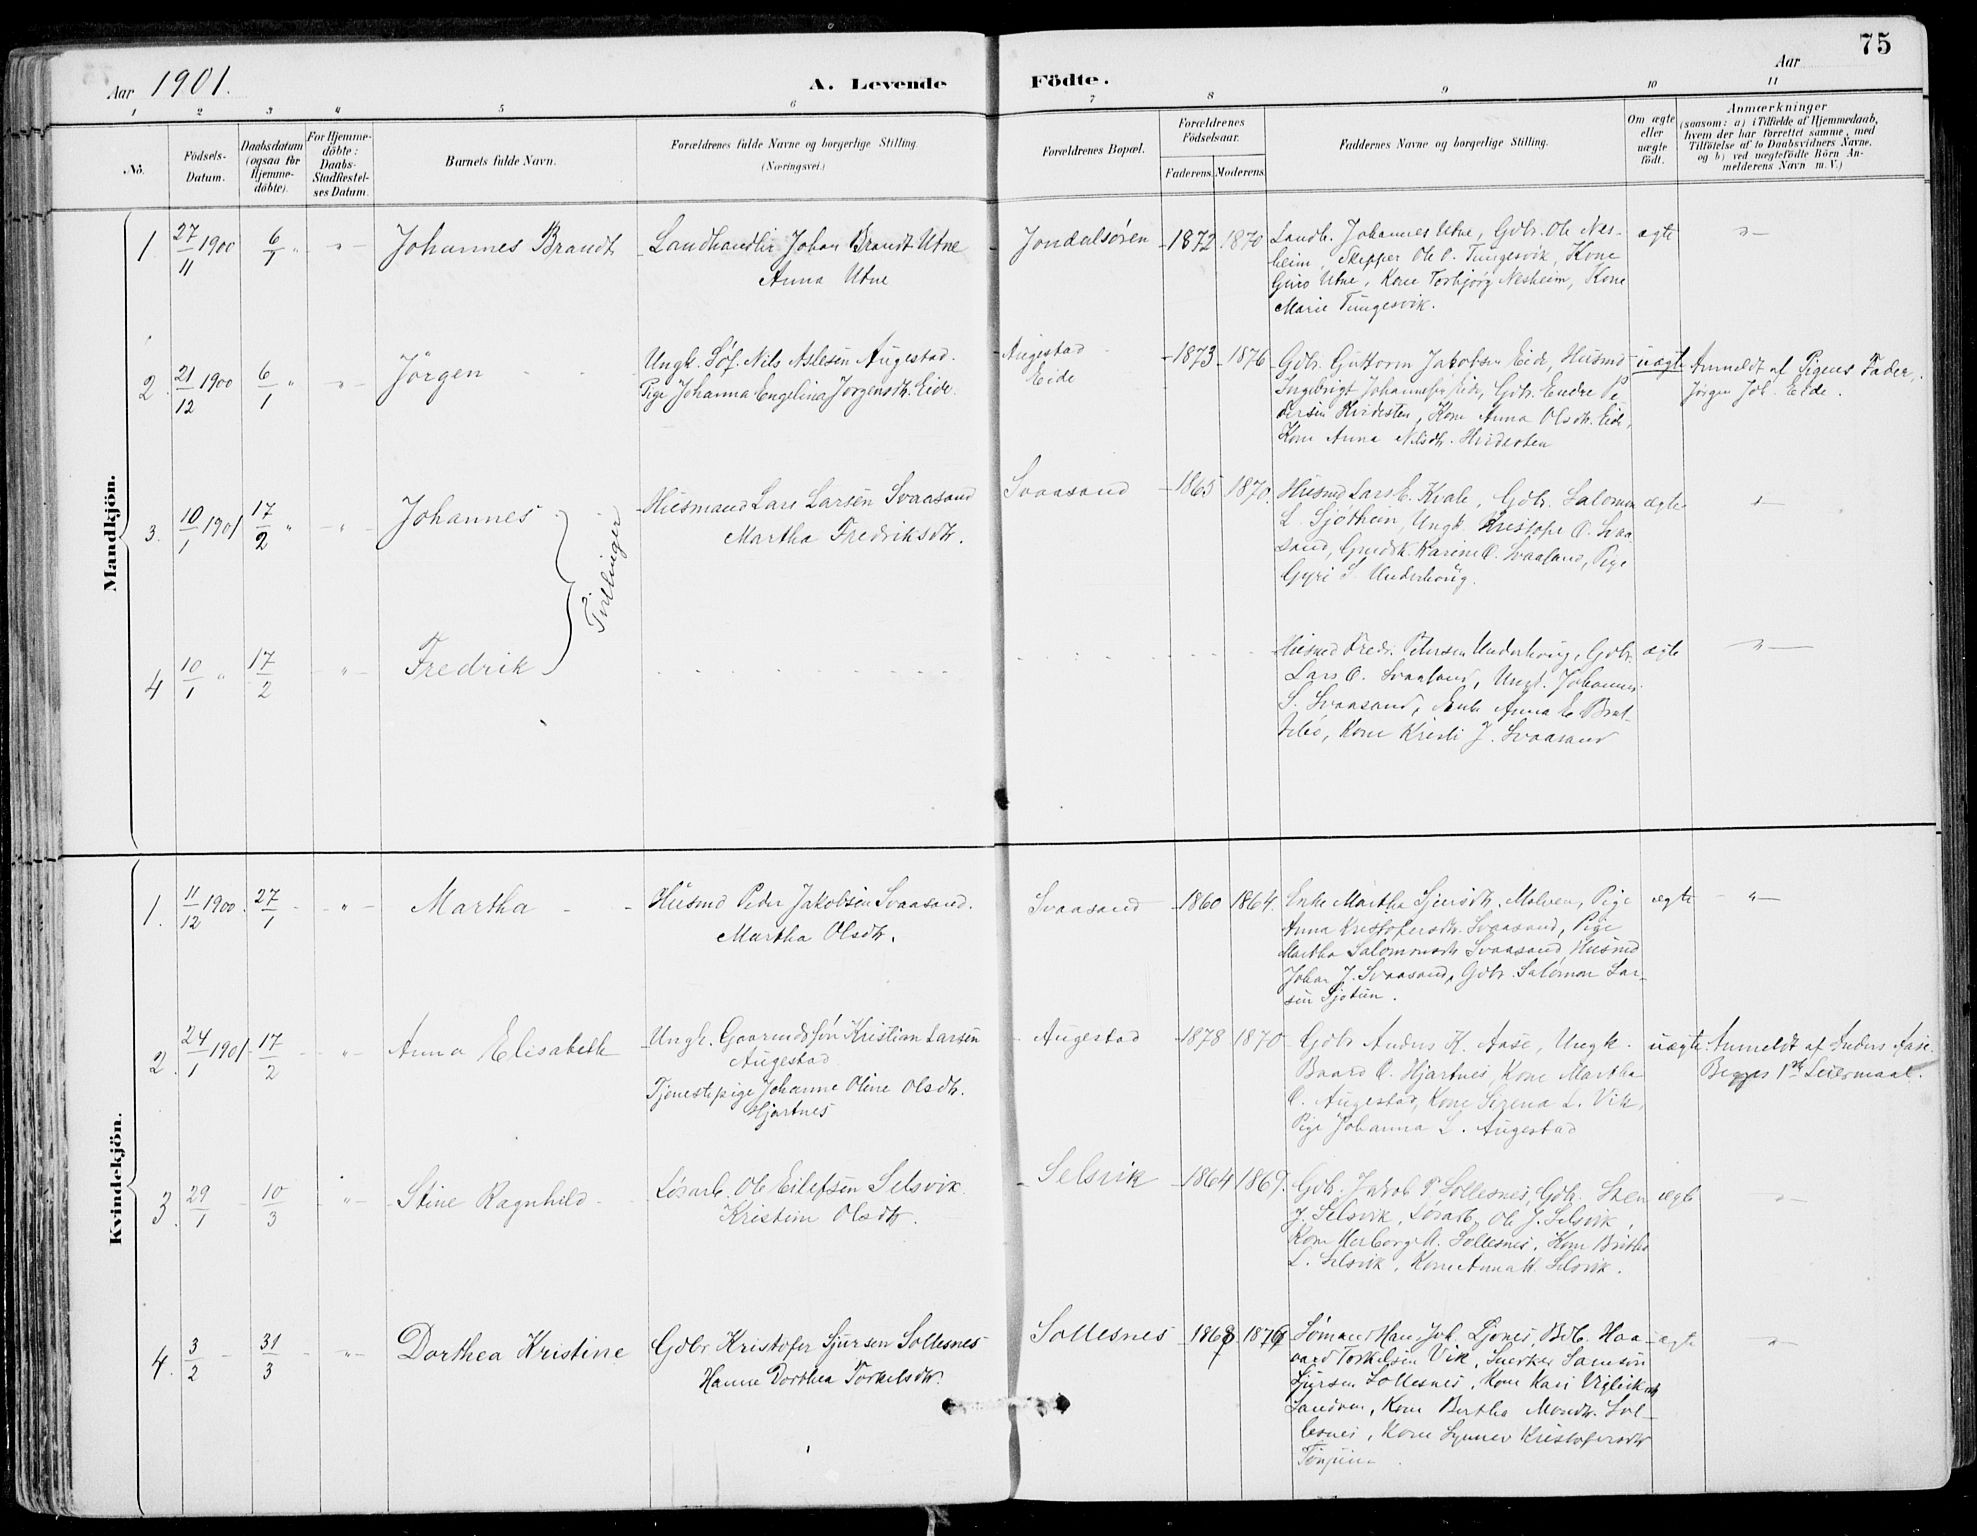 Aar 1901.
A. Levende
Födte.
Aar
75
1 2 3 4 5 6 7 8 9 10 11
No.
Födsels-Datum.
Daabsdatum (ogsaa for Hjemme-döbte).
For Hjemme-döbte: Daabs-Stadfæstel-ses Datum.
Barnets fulde Navn.
Forældrenes fulde Navne og borgerlige Stilling. (Næringsvei.)
Forældrenes Bopæl.
Forældrenes Födselsaar.
Faderens. Moderens.
Faddernes Navne og borgerlige Stilling.
Om ægte eller uægte födt.
Anmærkninger
(saasom: a) i Tilfælde af Hjemmedaab,
hvem der har forrettet samme, med
Tilföielse af to Daabsvidners Navne,
og b) ved uægtefödte Börn An-
melderens Navn m.V.)
Mandkjön.
1. 27/11 1900 6/1 " Johannes Brandt
Landhandler Johan Brandt Utne
Anna Utne
Jondalsören 1872 1870
Landh. Johannes Utne, Gdbr. Ole Nes-
heim, Skipper Ole O. Tungesvik, Kone
Guro Utne, Kone Torbjørg Nesheim, Kone
Marie Tungesvik.
ægte "
2. 21/12 1900 6/1 " " Jörgen
Ungk. Nils Aslesen Augestad.
Pige Johanna Engelina Jörgensdtr. Eide.
Augestad
Eide
1873 1876
Gdbr. Guttorm Jakobsen Eide, Husmd
Ingebrigt Eide, Gdbr. Endre Pe-
dersen Hvidesten, Kone Anna Olsdtr. Eide,
Kone Anna Nilsdtr. Hvidesten
uægte
Anmeldt af Pigens Fader,
Jörgen Joh. Eide.
3. 10/1 1901 17/2 " " Johannes
Tvillinger
Husmand Lars Larsen Svaasand
Martha Fredriksdtr.
Svaasand 1865 1870.
Husmd Lars E. Kvale, Gdbr. Salomon
L. Sjøthun, Ungk. Kristofer O. Svaa-
sand, Karine O. Svaasand, Pige
Gyri S. Underhoug.
ægte "
4 10/1 " 17/2 " Fredrik
Husmd Fredr. Petersen Underhoug, Gdbr.
Lars O. Svaasand, Ungk. Johannes
S. Svaasand, Enke Anna E.
Kone Kristi J. Svaasand
ægte "
Kvindekjön.
1. 11/12 1900. 27/1 " Martha
Husmd Peder Jakobsen Svaasand.
Martha Olsdtr.
Svaasand 1860 1864.
Enke Martha Sjursdtr. Molven, Pige
Anna Kristofersdtr. Svaasand, Pige
Martha Salomonsdtr Svaasand, Husmd
Johan J. Svaasand, Gdbr. Salomon Lar-
sen Sjotun.
ægte "
2. 24/1 1901 17/2 " Anna Elisabeth
Ungk. Gaardmdsön Kristian Larsen
Augestad
Tjenestepige Johanne Oline Olsdtr.
Hjartnes
Augestad 1878 1870
Gdbr Anders K. Aase, Ungk.
Baard O. Hjartnes, Kone Martha
O. Augestad, Kone Sirena L. Vik,
Pige Johanna L. Augestad
uægte.
Anmeldt af Anders Aase.
Begges 1ste Leiermaal.
3. 29/1 10/3 " Stine Ragnhild
Lösarb. Ole Eilefsen Selsvik
Kristine Olsdtr.
Selsvik 1864 1869.
Gdb. Jakob P. Sollesnes, Gdb. Sten
J. Selsvik, Lösarb. Ole J. Selsvik,
Kone Herborg A. Sollesnes, Kone Britha
L. Selsvik, Kone Anna H. Selsvik.
ægte "
4. 3/2 31/3 " Dorthea Kristine
Gdbr Kristofer Sjursen Sollesnes
Hanne Dorthea Torkelsdtr.
Sollesnes 1868 1876
Sömand Hans Joh. Ljones, Haa-
vard Torkelsen Vik, Snerker Samson
Sjursen Sollesnes, Kone Kari Vigleiksdtr
Sandven, Kone Bertha Monsdtr. Sol-
lesnes, Kone Synnev Kristofersdtr
ægte "